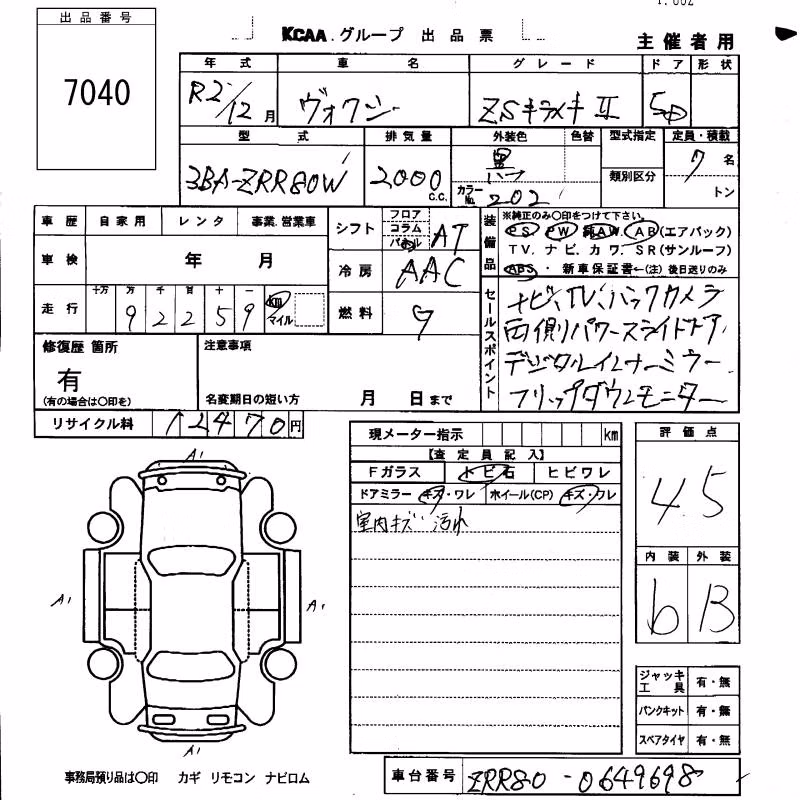 出品番号
7040
KCAA.グループ 出品票
主催者用
年式 車名 グレード ドア 形状
R2/12月 ヴォクシー ZSキラメキⅡ 5D
型式 排気量 外装色 色替 型式指定 定員・積載
3BA-ZRR80W 2000 C.C. 黒 カラーNo. 202 類別区分 7名 トン
車歴 自家用 レンタ 事業.営業車
シフト フロア コラム パネル AT
装備品 ※純正のみ○印をつけて下さい。
PS PW 純AW. AB(エアバック)
TV. ナビ. カワ. SR(サンルーフ)
ABS・ 新車保証書←(注)後日送りのみ
車検 年 月
冷房 AAC
走行 十万 万 千 百 十 一 km マイル
9 2 2 5 9
燃料 G
セールスポイント
ナビ、TV、バックカメラ
両側パワースライドドア
デジタルインナーミラー
フリップダウンモニター
修復歴 箇所 注意事項
有
(有の場合は○印を) 名変期日の短い方 月 日まで
リサイクル料 12470円
現メーター指示 km
【査定員記入】
Fガラス トビ石 ヒビワレ
ドアミラー キズ・ワレ ホイール(CP) キズ・ワレ
室内キズ 汚れ
評価点
4.5
内装 外装
b B
A1
A1 A1
A1
ジャッキ工具 有・無
パンクキット 有・無
スペアタイヤ 有・無
事務局預り品は○印 カギ リモコン ナビロム
車台番号 ZRR80-0649698